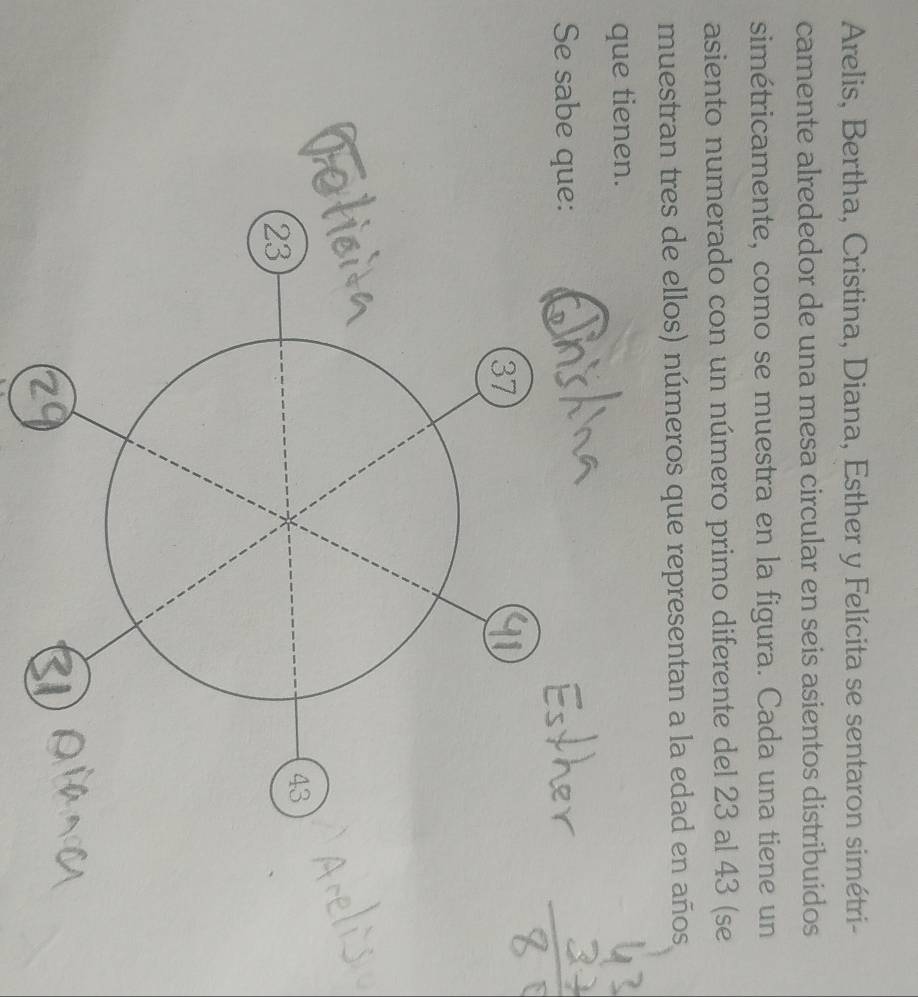 Arelis, Bertha, Cristina, Diana, Esther y Felícita se sentaron simétri-
camente alrededor de una mesa circular en seis asientos distribuidos
simétricamente, como se muestra en la figura. Cada una tiene un
asiento numerado con un número primo diferente del 23 al 43 (se
muestran tres de ellos) números que representan a la edad en años
que tienen.
Se sabe que:
37
41
Esther
43
37
8
23
43
Arelis
29
31